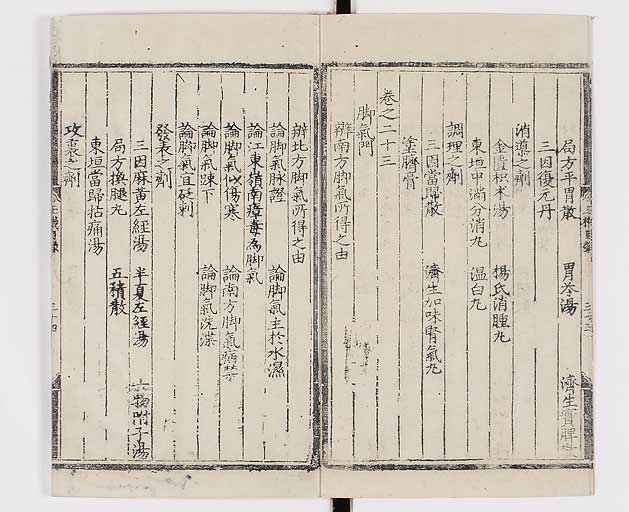 局方平胃散 胃苓湯 濟生實脾散
三因復元丹
消導之劑
金匱枳朮湯 楊氏消腫丸
東垣中滿分消丸 溫白丸
調理之劑
三因當歸散 濟生加味腎氣丸
塗臍膏
卷之二十三
脚氣門
辨南方脚氣所得之由
辨北方脚氣所得之由
論脚氣脉證 論脚氣主於水濕
論江東嶺南瘴毒為脚氣
論脚氣似傷寒 論南方脚氣病禁
論脚氣踈下 論脚氣洗渫
論脚氣宜砭刺
發表之劑
三因麻黄左經湯 半夏左經湯 六物附子湯
局方換腿丸 五積散
東垣當歸拈痛湯
攻裏之劑